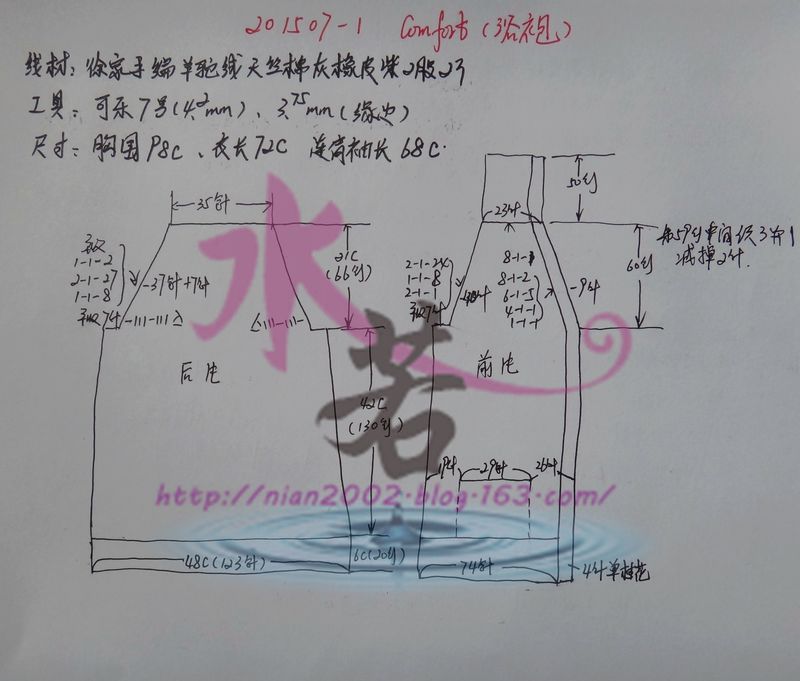 201507-1 Comfort (浴袍)
线材: 徐家手编羊驼线天丝棉灰橡皮柴2股23
工具: 可乐7号(4.2mm)、3.75mm(缘边)
尺寸: 胸围98C、衣长72C 连肩袖长68C.
35针
平收
1-1-2
2-1-27
1-1-8
平收7针
-37针+7针
-111-111
111-111-
21C
(66行)
后片
42C
(130行)
48C(123针)
6C(20行)
50行
23针
60行
2-1-1
1-1-8
平收7针
8-1-1
8-1-2
6-1-5
4-1-1
1-1-1
-9针
减掉2针.
前片
19针
29针
26针
74针
4针单桂花
水
若
http://nian2002.blog.163.com/